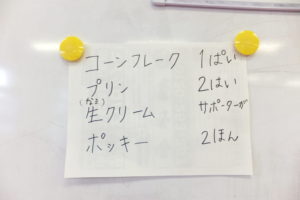 コーンフレーク 1ぱい
プリン 2はい
(なま)
生クリーム サポーターが
ポッキー 2ほん